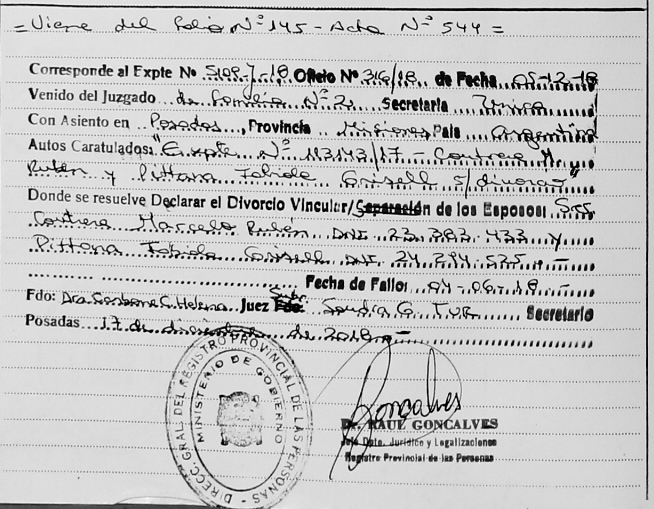 = Viene del Folio Nº 145 - Acta Nº 544 =
Corresponde al Expte Nº 5109-J-18 Oficio Nº 316/18 de Fecha 05-12-18
Venido del Juzgado de Familia Nº 2 Secretaría Única
Con Asiento en Posadas, Provincia Misiones País Argentina
Autos Caratulados: "Expte Nº 113143/17 - Contrera M.
Rubén y Pittana Fabiola Grisell s/divorcio"
Donde se resuelve Declarar el Divorcio Vincular/Separación de los Esposos: Sres
Contrera Marcelo Rubén DNI 23.383.433 y
Pittana Fabiola Grisell DNI 24.294.535 . -
Fecha de Fallo: 04-06-18 -
Fdo: Dra C. Helena Juez Subr. Fdo: Sandra G. Secretario
Posadas 17 de diciembre de 2018 -
DIRECC. GRAL. DEL REGISTRO PROVINCIAL DE LAS PERSONAS -
MINISTERIO DE GOBIERNO
Goncalves
Dr. RAUL GONCALVES
Jefe Dpto. Jurídico y Legalizaciones
Registro Provincial de las Personas